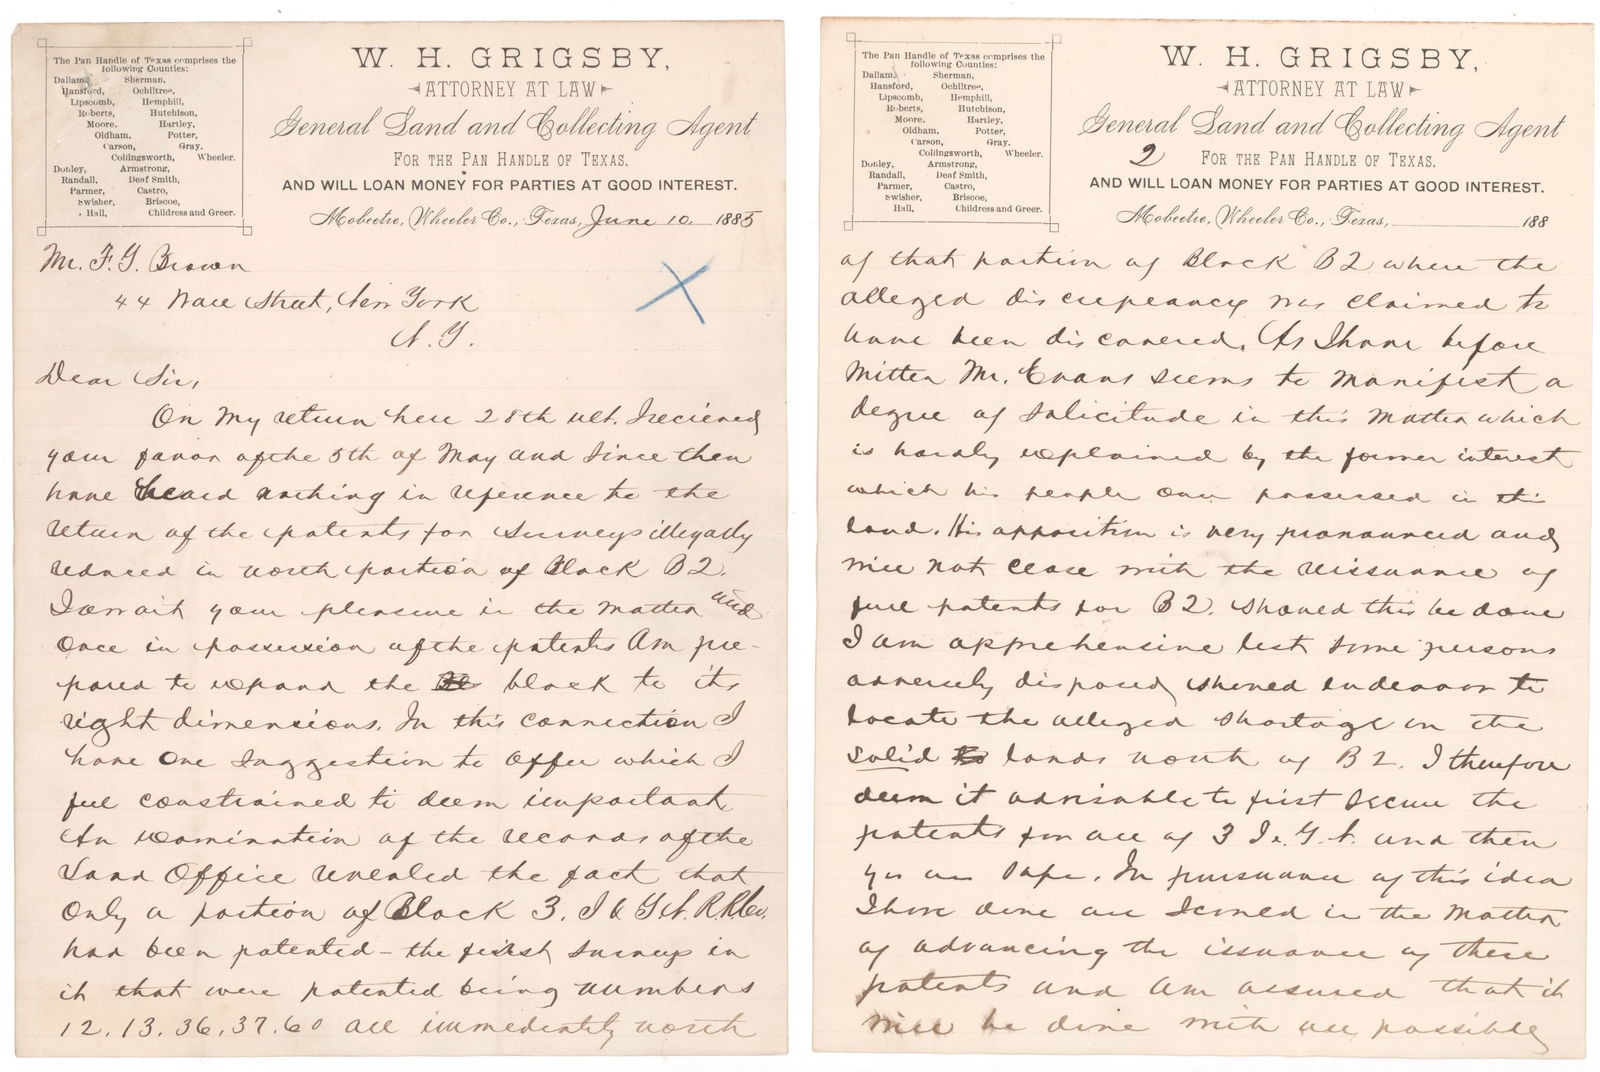 The Pan Handle of Texas comprises the
following Counties:
Dallam, Sherman,
Hansford, Ochiltree,
Lipscomb, Hemphill,
Roberts, Hutchison,
Moore. Hartley,
Oldham, Potter,
Carson, Gray,
Collingsworth, Wheeler.
Donley, Armstrong,
Randall, Deaf Smith,
Parmer, Castro,
Swisher, Briscoe,
Hall, Childress and Greer.
W. H. GRIGSBY,
ATTORNEY AT LAW
General Land and Collecting Agent
FOR THE PAN HANDLE OF TEXAS.
AND WILL LOAN MONEY FOR PARTIES AT GOOD INTEREST.
Mobeetie, Wheeler Co., Texas, June 10 1885
Mr. F. G. Brown
44 Wall Street, New York
N. Y.
Dear Sir,
On my return here 28th ult. I recieved
your favor of the 5th of May and since then
have heard nothing in reference to the
return of the patents for surveys illegally
reduced in north portion of Block B2.
I await your pleasure in the matter and
once in possession of the patents am pre-
pared to expand the block to its
right dimensions. In this connection I
have one suggestion to offer which I
feel constrained to deem important
An examination of the records of the
Land Office revealed the fact that
only a portion of Block 3. I & G N. R.R. Co.
had been patented - the first surveys in
it that were patented being numbers
12. 13. 36, 37. 60 all immediately north
The Pan Handle of Texas comprises the
following Counties:
Dallam, Sherman,
Hansford, Ochiltree,
Lipscomb, Hemphill,
Roberts, Hutchison,
Moore. Hartley,
Oldham, Potter,
Carson, Gray,
Collingsworth, Wheeler.
Donley, Armstrong,
Randall, Deaf Smith,
Parmer, Castro,
Swisher, Briscoe,
Hall, Childress and Greer.
W. H. GRIGSBY,
ATTORNEY AT LAW
General Land and Collecting Agent
2 FOR THE PAN HANDLE OF TEXAS.
AND WILL LOAN MONEY FOR PARTIES AT GOOD INTEREST.
Mobeetie, Wheeler Co., Texas, 188
of that portion of Block B2 where the
alleged discrepancy was claimed to
have been discovered. As I have before
written Mr. Evans seems to manifest a
degree of solicitude in this matter which
is hardly explained by the former interest
which his people over possessed in this
land. His opposition is very pronounced and
will not cease with the reissuance of
full patents for B2. Should this be done
I am apprehensive lest some persons
adversely disposed, should endeavor to
locate the alleged shortage on the
solid lands north of B2. I therefore
deem it advisable to first secure the
patents for all of 3 I. & G. N. and then
you are safe. In pursuance of this idea
I have done all I could in the matter
of advancing the issuance of these
patents and am assured that it
will be done with all possible